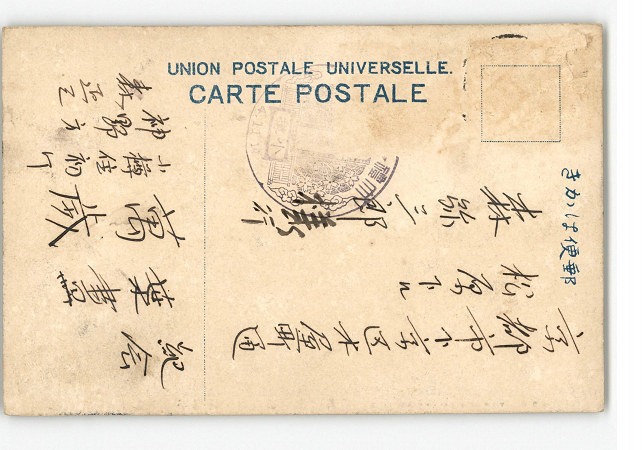 UNION POSTALE UNIVERSELLE.
CARTE POSTALE
きかは便郵
京都市下京区木屋町通
松原下ル
森弥三郎様
行
紀念
葉書
萬歳
小樽住初
神野方
義正